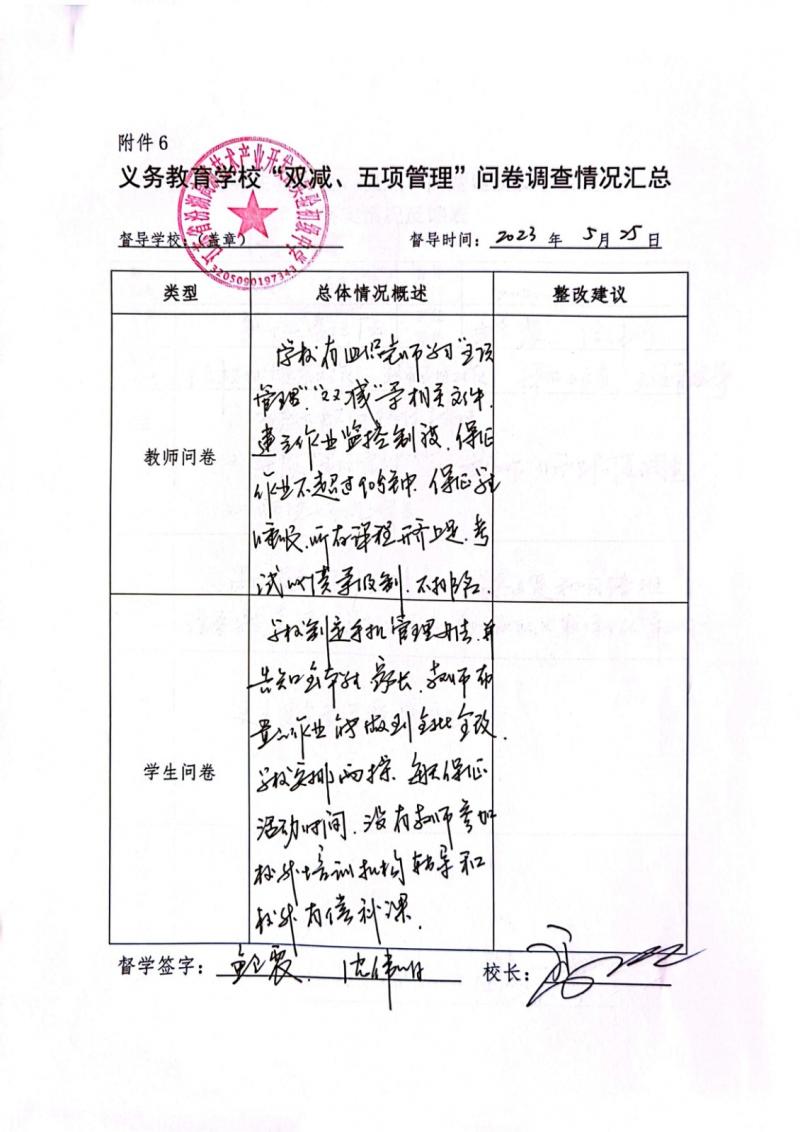 附件6
义务教育学校“双减、五项管理”问卷调查情况汇总
督导学校：（盖章）
督导时间：2023年5月25日
3205090197343
类型
总体情况概述
整改建议
教师问卷
学校有组织老师学习“五项
管理”“双减”等相关文件，
建立作业监控制度，保证
作业不超过90分钟，保证
睡眠，所有课程开齐上足，考
试成绩等级制，不排名。
学生问卷
学校制定手机管理办法，并
告知全体 家长，教师布
置的作业能做到全批全改，
学校安排两操，每天保证
活动时间，没有教师参加
校外培训机构辅导和
校外有偿补课。
督学签字：
校长：